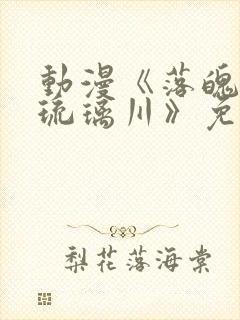 動漫《落魄
琉璃川》免
梨花落海棠